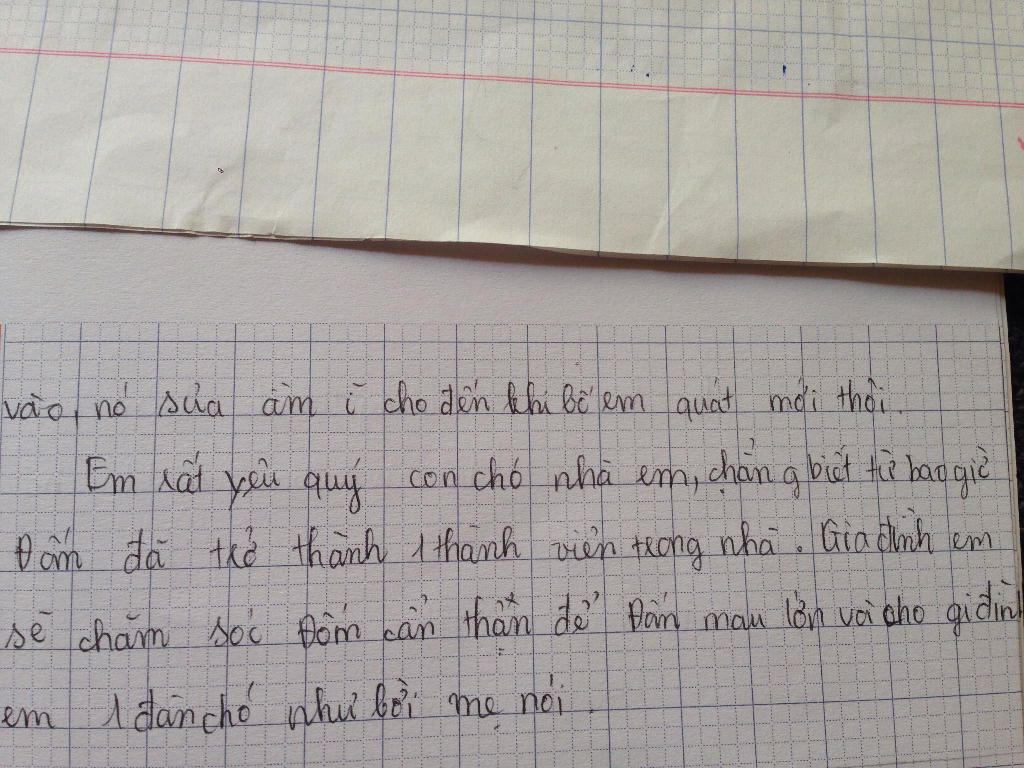 vào, nó sủa ầm ĩ cho đến khi bố em quát mới thôi.
Em rất yêu quý con chó nhà em, chẳng biết từ bao giờ
Đốm đã trở thành 1 thành viên trong nhà. Gia đình em
sẽ chăm sóc Đốm cẩn thận để Đốm mau lớn và cho gi đình
em 1 đàn chó như bời mẹ nói.